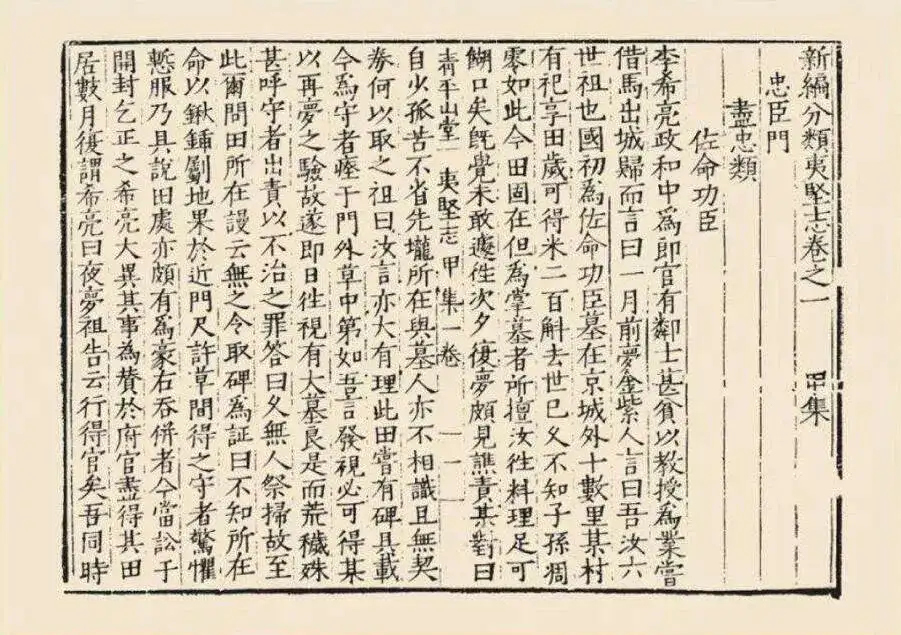 新編分類夷堅志卷之一 甲集
忠臣門
盡忠類
佐命功臣
李希亮政和中爲郎官有鄰士甚貧以教授為業嘗
借馬出城歸而言曰一月前夢金紫人言曰吾汝六
世祖也國初為佐命功臣墓在京城外十數里某村
有祀享田歲可得米二百斛去世已久不知子孫凋
零如此今田固在但為掌墓者所擅汝徃料理足可
餬口矣旣覺未敢遽徃次夕復夢頗見譙責某對曰
清平山堂 夷堅志甲集一卷 一
自少孤苦不省先壠所在與墓人亦不相識且無契
券何以取之祖曰汝言亦大有理此田嘗有碑具載
今爲守者瘞于門外草中第如吾言發視必可得某
以再夢之驗故遂即日徃視有大墓良是而荒穢殊
甚呼守者出責以不治之罪荅曰久無人祭掃故至
此爾問田所在謾云無之令取碑爲証曰不知所在
命以鍬鍤斸地果於近門尺許草間得之守者驚懼
慙服乃具說田處亦頗有爲豪右吞併者今當訟于
開封乞正之希亮大異其事為賛於府官盡得其田
居數月復謂希亮曰夜夢祖告云行得官矣吾同時